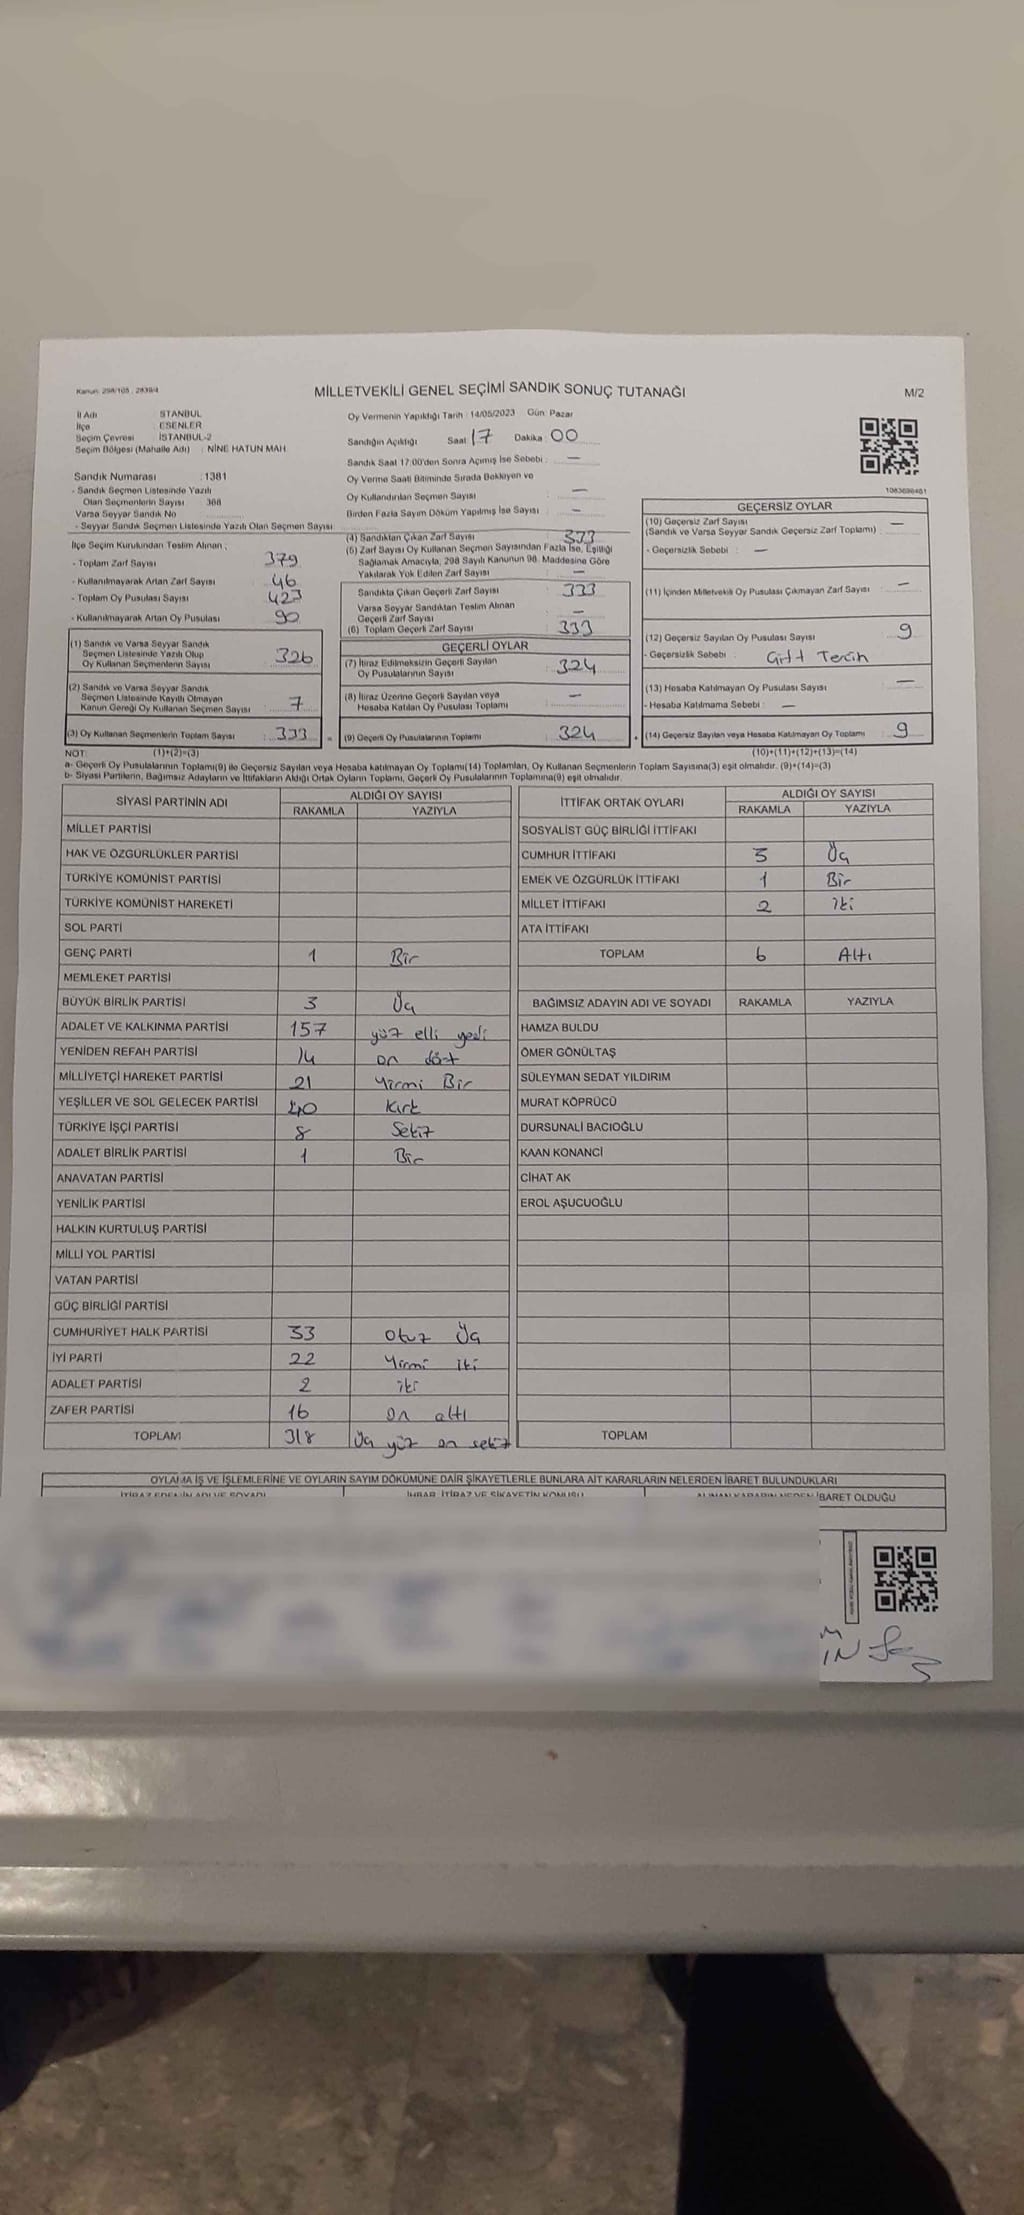 Kanun: 298/105 , 2839/4
MİLLETVEKİLİ GENEL SEÇİMİ SANDIK SONUÇ TUTANAĞI
M/2
İl Adı : İSTANBUL
İlçe : ESENLER
Seçim Çevresi : İSTANBUL-2
Seçim Bölgesi (Mahalle Adı) : NİNE HATUN MAH.
Sandık Numarası : 1381
- Sandık Seçmen Listesinde Yazılı
Olan Seçmenlerin Sayısı 368
Varsa Seyyar Sandık No
- Seyyar Sandık Seçmen Listesinde Yazılı Olan Seçmen Sayısı
Oy Vermenin Yapıldığı Tarih : 14/05/2023 Gün: Pazar
Sandığın Açıldığı Saat 17 Dakika : 00
Sandık Saat 17:00'den Sonra Açılmış İse Sebebi : —
Oy Verme Saati Bitiminde Sırada Bekleyen ve
Oy Kullandırılan Seçmen Sayısı : —
Birden Fazla Sayım Döküm Yapılmış İse Sayısı : —
İlçe Seçim Kurulundan Teslim Alınan ;
- Toplam Zarf Sayısı : 379
- Kullanılmayarak Artan Zarf Sayısı : 46
- Toplam Oy Pusulası Sayısı : 423
- Kullanılmayarak Artan Oy Pusulası : 90
(1) Sandık ve Varsa Seyyar Sandık
Seçmen Listesinde Yazılı Olup
Oy Kullanan Seçmenlerin Sayısı : 326
(2) Sandık ve Varsa Seyyar Sandık
Seçmen Listesinde Kayıtlı Olmayan
Kanun Gereği Oy Kullanan Seçmen Sayısı : 7
(3) Oy Kullanan Seçmenlerin Toplam Sayısı : 333
(4) Sandıktan Çıkan Zarf Sayısı : 333
(5) Zarf Sayısı Oy Kullanan Seçmen Sayısından Fazla İse, Eşitliği
Sağlamak Amacıyla, 298 Sayılı Kanunun 98. Maddesine Göre
Yakılarak Yok Edilen Zarf Sayısı : —
Sandıkta Çıkan Geçerli Zarf Sayısı : 333
Varsa Seyyar Sandıktan Teslim Alınan
Geçerli Zarf Sayısı : —
(6) Toplam Geçerli Zarf Sayısı : 333
GEÇERLİ OYLAR
(7) İtiraz Edilmeksizin Geçerli Sayılan
Oy Pusulalarının Sayısı : 324
(8) İtiraz Üzerine Geçerli Sayılan veya
Hesaba Katılan Oy Pusulası Toplamı : —
(9) Geçerli Oy Pusulalarının Toplamı : 324
1083698481
GEÇERSİZ OYLAR
(10) Geçersiz Zarf Sayısı
(Sandık ve Varsa Seyyar Sandık Geçersiz Zarf Toplamı) : —
- Geçersizlik Sebebi : —
(11) İçinden Milletvekili Oy Pusulası Çıkmayan Zarf Sayısı : —
(12) Geçersiz Sayılan Oy Pusulası Sayısı : 9
- Geçersizlik Sebebi : Çift Tercih
(13) Hesaba Katılmayan Oy Pusulası Sayısı : —
- Hesaba Katılmama Sebebi : —
(14) Geçersiz Sayılan veya Hesaba Katılmayan Oy Toplamı : 9
NOT: (1)+(2)=(3)
(10)+(11)+(12)+(13)=(14)
a- Geçerli Oy Pusulalarının Toplamı(9) ile Geçersiz Sayılan veya Hesaba katılmayan Oy Toplamı(14) Toplamları, Oy Kullanan Seçmenlerin Toplam Sayısına(3) eşit olmalıdır. (9)+(14)=(3)
b- Siyasi Partilerin, Bağımsız Adayların ve İttifakların Aldığı Ortak Oyların Toplamı, Geçerli Oy Pusulalarının Toplamına(9) eşit olmalıdır.
SİYASİ PARTİNİN ADI
ALDIĞI OY SAYISI
RAKAMLA YAZIYLA
MİLLET PARTİSİ
HAK VE ÖZGÜRLÜKLER PARTİSİ
TÜRKİYE KOMÜNİST PARTİSİ
TÜRKİYE KOMÜNİST HAREKETİ
SOL PARTİ
GENÇ PARTİ 1 Bir
MEMLEKET PARTİSİ
BÜYÜK BİRLİK PARTİSİ 3 Üç
ADALET VE KALKINMA PARTİSİ 157 yüz elli yedi
YENİDEN REFAH PARTİSİ 14 on dört
MİLLİYETÇİ HAREKET PARTİSİ 21 Yirmi Bir
YEŞİLLER VE SOL GELECEK PARTİSİ 40 Kırk
TÜRKİYE İŞÇİ PARTİSİ 8 Sekiz
ADALET BİRLİK PARTİSİ 1 Bir
ANAVATAN PARTİSİ
YENİLİK PARTİSİ
HALKIN KURTULUŞ PARTİSİ
MİLLİ YOL PARTİSİ
VATAN PARTİSİ
GÜÇ BİRLİĞİ PARTİSİ
CUMHURİYET HALK PARTİSİ 33 otuz Üç
İYİ PARTİ 22 Yirmi iki
ADALET PARTİSİ 2 iki
ZAFER PARTİSİ 16 on altı
TOPLAM 318 Üç yüz on sekiz
İTTİFAK ORTAK OYLARI
ALDIĞI OY SAYISI
RAKAMLA YAZIYLA
SOSYALİST GÜÇ BİRLİĞİ İTTİFAKI
CUMHUR İTTİFAKI 3 Üç
EMEK VE ÖZGÜRLÜK İTTİFAKI 1 Bir
MİLLET İTTİFAKI 2 iki
ATA İTTİFAKI
TOPLAM 6 Altı
BAĞIMSIZ ADAYIN ADI VE SOYADI RAKAMLA YAZIYLA
HAMZA BULDU
ÖMER GÖNÜLTAŞ
SÜLEYMAN SEDAT YILDIRIM
MURAT KÖPRÜCÜ
DURSUNALİ BACIOĞLU
KAAN KONANCİ
CİHAT AK
EROL AŞUCUOĞLU
TOPLAM
OYLAMA İŞ VE İŞLEMLERİNE VE OYLARIN SAYIM DÖKÜMÜNE DAİR ŞİKAYETLERLE BUNLARA AİT KARARLARIN NELERDEN İBARET BULUNDUKLARI
İTİRAZ EDENİN ADI VE SOYADI
İHBAR, İTİRAZ VE ŞİKAYETİN KONUSU
ALINAN KARARIN NEDEN İBARET OLDUĞU